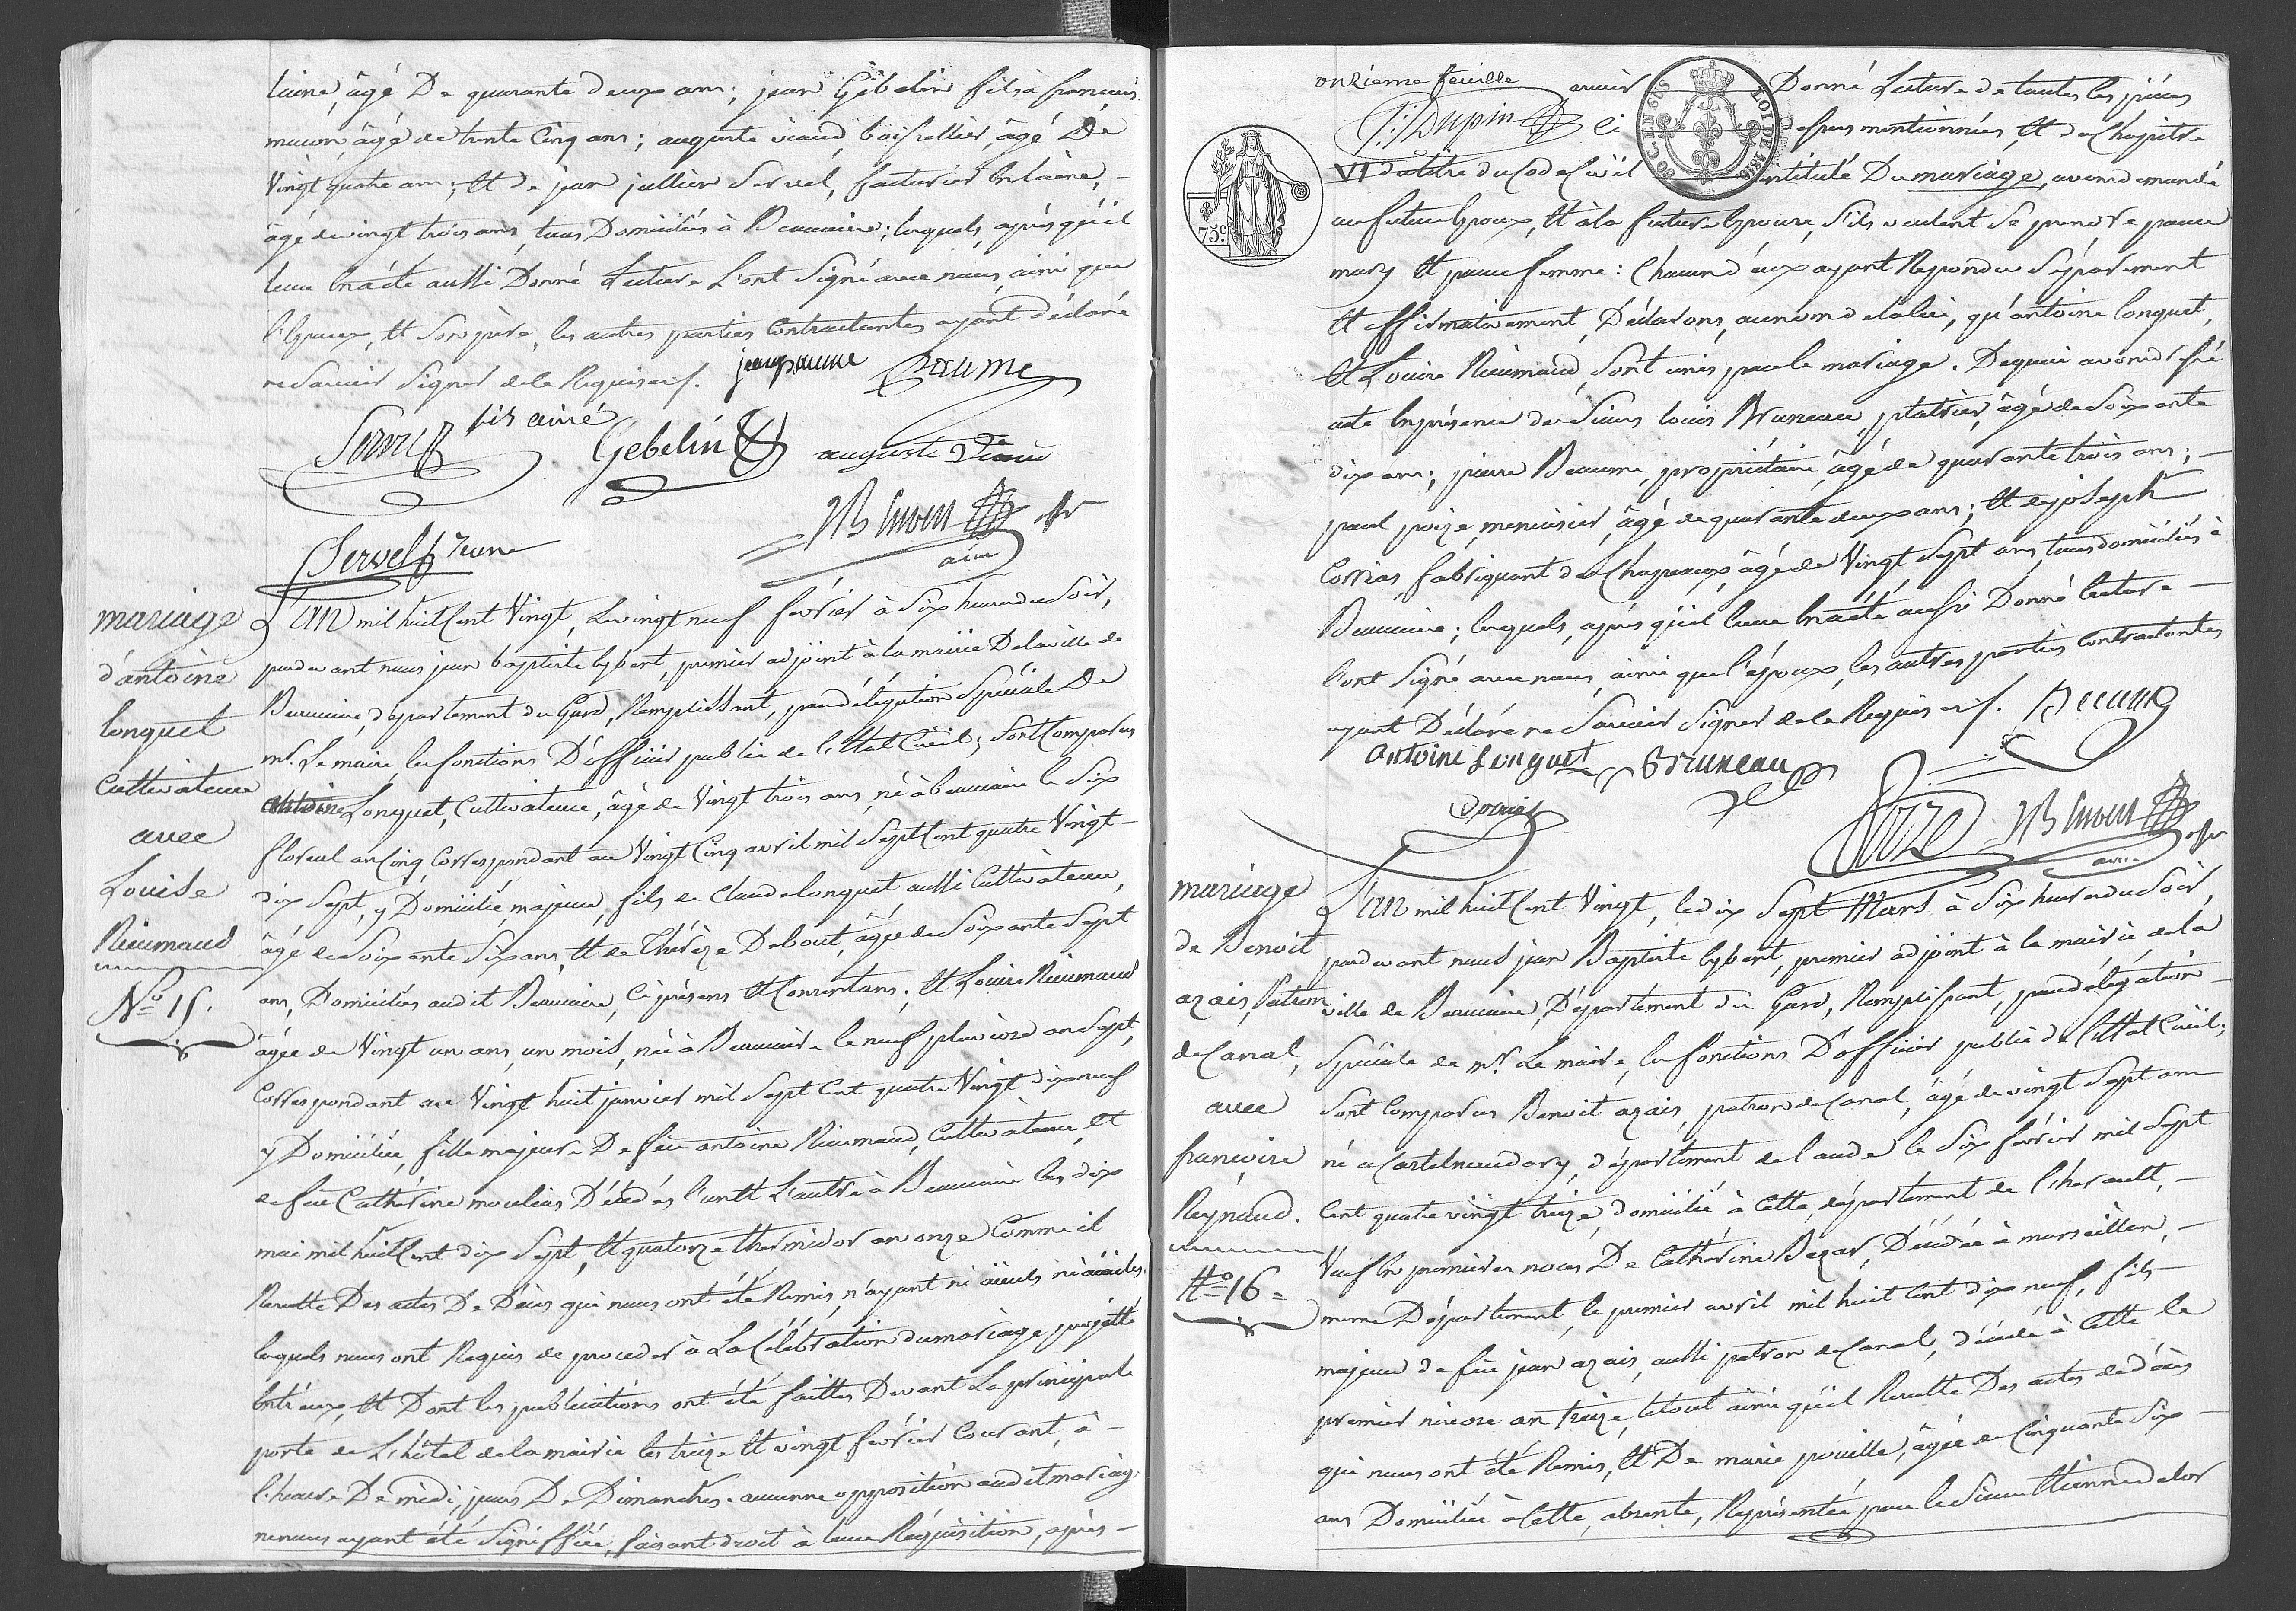 laine, âgé De quarante deux ans; jean Gébelin fils à françois
maçon, âgé de trente Cinq ans; auguste viaud, boissellier, âgé De
Vingt quatre ans; et de jean jullien Servel, facturier en laine, -
âgé de vingt trois ans, tous Domiciliés à Beaucaire; lesquels, après qu'il
leur en a été aussi Donné Lecture L'ont Signé avec nous, ainsi que
l'Epoux, et Son père, les autres parties Contractantes ayant déclaré
ne Savoir Signer de ce Requises ./. jean paume Paume
Servel fils ainé Gebelin auguste Viaud
Servel jeune JB Eybert adjt
aîné
mariage
d'antoine
longuet
Cultivateur
avec
Louise
Rieumaud
N.º 15.
L'an mil huit Cent Vingt, Le vingt neuf février à Six heures du Soir,
pardevant nous jean baptiste Eybert, premier adjoint à la mairie De la ville de
Beaucaire, département du Gard, Remplissant, par délégation Spéciale De
mr. Le maire, les fonctions D'officier public de l'Etat Civil; Sont Comparus
antoine Longuet, Cultivateur, âgé de Vingt trois ans, né à beaucaire le Six
floréal an Cinq, Correspondant au Vingt Cinq avril mil Sept Cent quatre Vingt -
dix Sept, y Domicilié, majeur, fils de Claude longuet, aussi Cultivateur,
âgé de Soixante Six ans, et de Thérèze Debout, âgée de Soixante Sept
ans, Domiciliés audit Beaucaire, Ci présens et Consentans; et Louise Rieumaud
âgée de Vingt un ans, un mois, née à Beaucaire le neuf pluviose an Sept,
Correspondant au Vingt huit janvier mil Sept Cent quatre Vingt dix neuf
y Domiciliée, fille majeure De feu antoine Rieumaud, Cultivateur, et
de feue Cathérine moulias Décédés l'un et L'autre à Beaucaire les dix
mai mil huit Cent dix Sept, et quatorze thermidor an onze Comme il
Resulte Des actes De Décès qui nous ont été Remis, n'ayant ni aïeuls ni aïeules,
lesquels nous ont Requis de proceder à La Célébration du mariage projetté
entr'eux, et Dont les publications ont été faittes Devant La principale
porte de L'hôtel de la mairie les treize et vingt février Courant, à -
l'heure De midi, jours De Dimanches. aucune opposition audit mariage
ne nous ayant été Signiffiée, faisant droit à leur Réquisition, après -
onzieme feuille avoir Donné Lecture de toutes les pièces
P. Dupin ci dessus mentionnées, et du Chapitre
VI du titre du Code Civil intitulé Du mariage, avons demandé
SOC. EN SUS LOI DE 1816
75.c
au futur Epoux, et à la future Epouse, S'ils veulent Se prendre pour
mary et pour femme: Chacun d'eux ayant Répondu Séparement
et affirmativement, Déclarons, au nom de la loi, qu'antoine longuet,
et Louise Rieumaud, Sont unis par le mariage. De quoi avons dressé
acte en présence des Sieurs louis Bruneau, platrier, âgé de Soixante
dix ans; pierre Beaume, propriétaire, âgé de quarante trois ans; -
paul poize, menuisier, âgé de quarante deux ans; et de joseph
Corrias, fabriquant de Chapeaux, âgé de Vingt Sept ans, tous domiciliés à
Beaucaire; lesquels, après qu'il leur en a été aussi Donné lecture -
l'ont Signé avec nous, ainsi que l'époux, les autres parties Contractantes
ayant Déclaré ne Savoir Signer de ce Requises ./. Beaume
Antoine Longuet Bruneau
Poize JB Eybert adjt
mariage
de Benoit
azais, Patron
de Canal,
avec
françoise
Reynaud.
N.º 16 =
L'an mil huit Cent Vingt, le dix Sept Mars à Six heures du Soir,
pardevant nous jean Baptiste Eybert, premier adjoint à la mairie de la
ville de Beaucaire, Département du Gard, Remplissant, par délégation -
Spéciale de mr. Le maire, les fonctions D'officier public de l'Etat Civil;
Sont Comparus Benoit azais, patron de Canal, âgé de vingt Sept ans
né à Castelnaudary, département de l'aude le Six février mil Sept
Cent quatre vingt treize, domicilié à Cette, département de l'herault, -
Veuf en premieres noces De Cathérine Bezar, Décédée à marseillan, -
meme Département, le premier avril mil huit Cent dix neuf, fils
majeur de feu jean azais, aussi patron de Canal, décédé à Cette le
premier nivose an treize, le tout ainsi qu'il Resulte Des actes de décès
qui nous ont été Remis, et De marie pouille, âgée de Cinquante Six -
ans Domiciliée à Cette, absente, Représentée par le Sieur Etienne delor